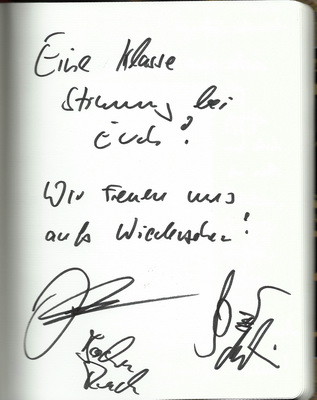 Eine Klasse
Stimmung bei
Euch!
Wir freuen uns
aufs Wiedersehen!